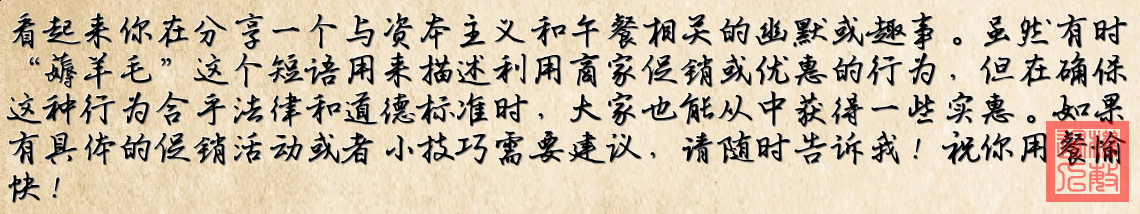 看起来你在分享一个与资本主义和午餐相关的幽默或趣事。虽然有时
“薅羊毛”这个短语用来描述利用商家促销或优惠的行为，但在确保
这种行为合乎法律和道德标准时，大家也能从中获得一些实惠。如果
有具体的促销活动或者小技巧需要建议，请随时告诉我！祝你用餐愉
快！